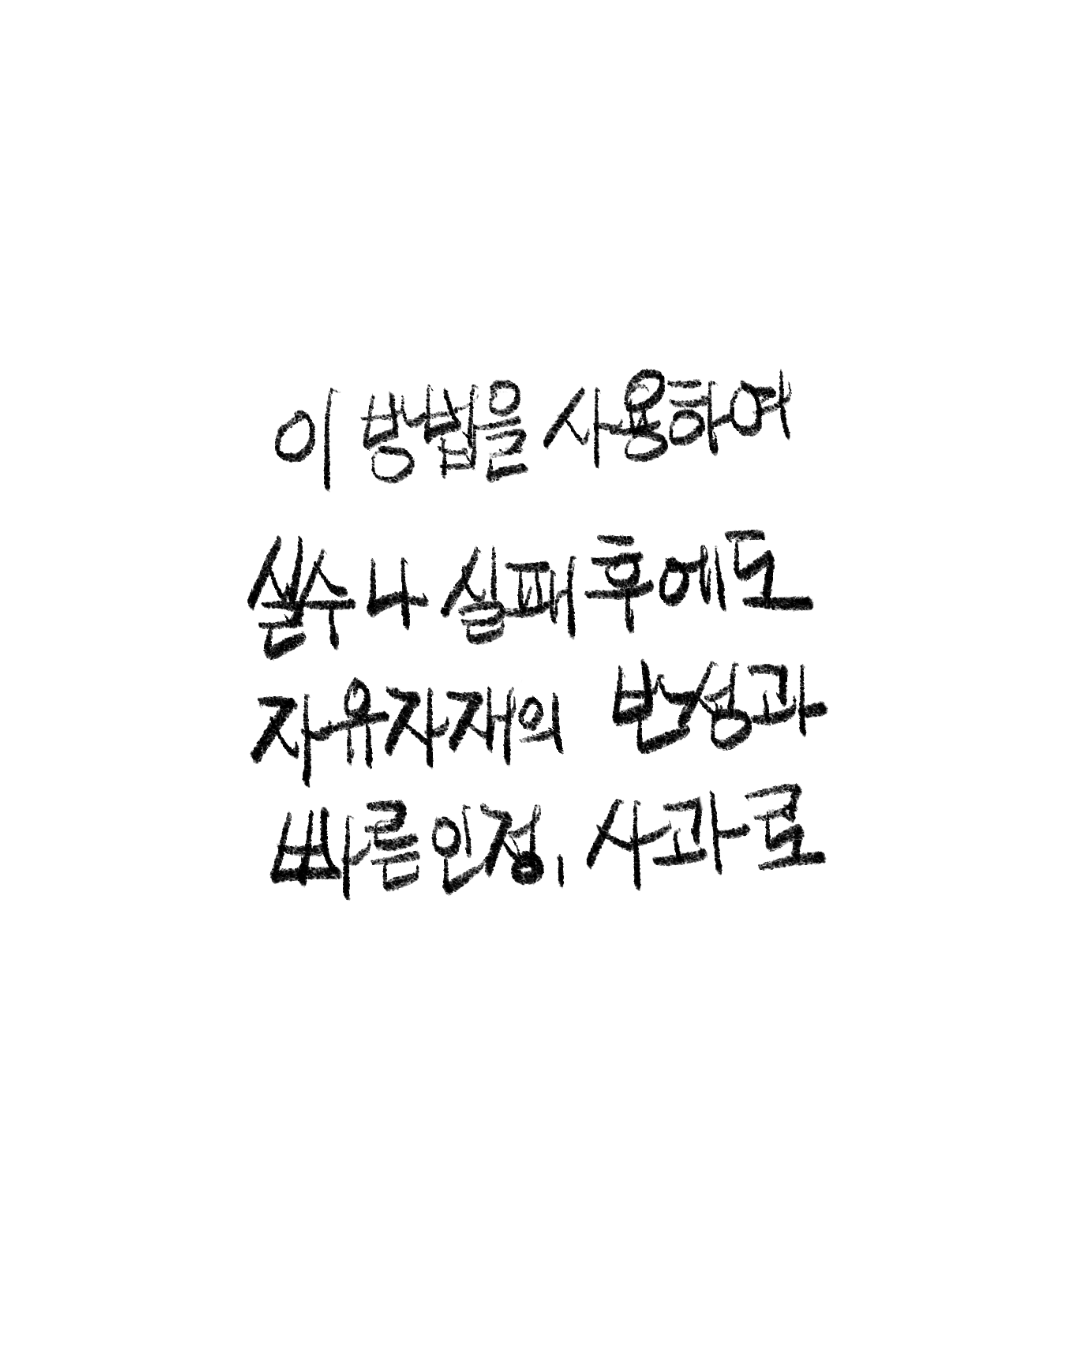 이 방법을 사용하여
실수나 실패 후에도
자유자재의 반성과
빠른 인정, 사과로